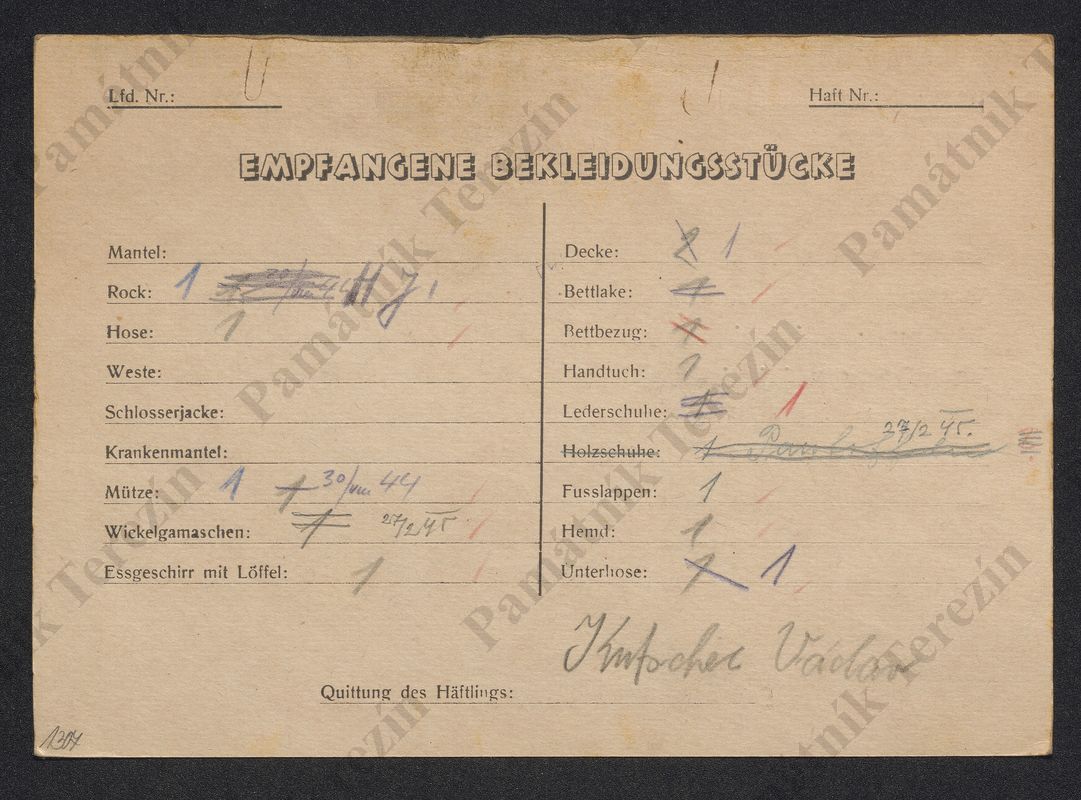 Lfd. Nr.:
Haft Nr.:
EMPFANGENE BEKLEIDUNGSSTÜCKE
Mantel:
Rock: 1 H J 1
Hose: 1
Weste:
Schlosserjacke:
Krankenmantel:
Mütze: 1 1 30/VIII 44
Wickelgamaschen: 1 27/2 45
Essgeschirr mit Löffel: 1
Decke: 2 1
Bettlake: 1
Bettbezug: 1
Handtuch: 1
Lederschuhe: 1 1
Holzschuhe: 1 27/2 45.
Fusslappen: 1
Hemd: 1
Unterhose: 1 1
Kutscher Václav
Quittung des Häftlings:
1307
Památník Terezín